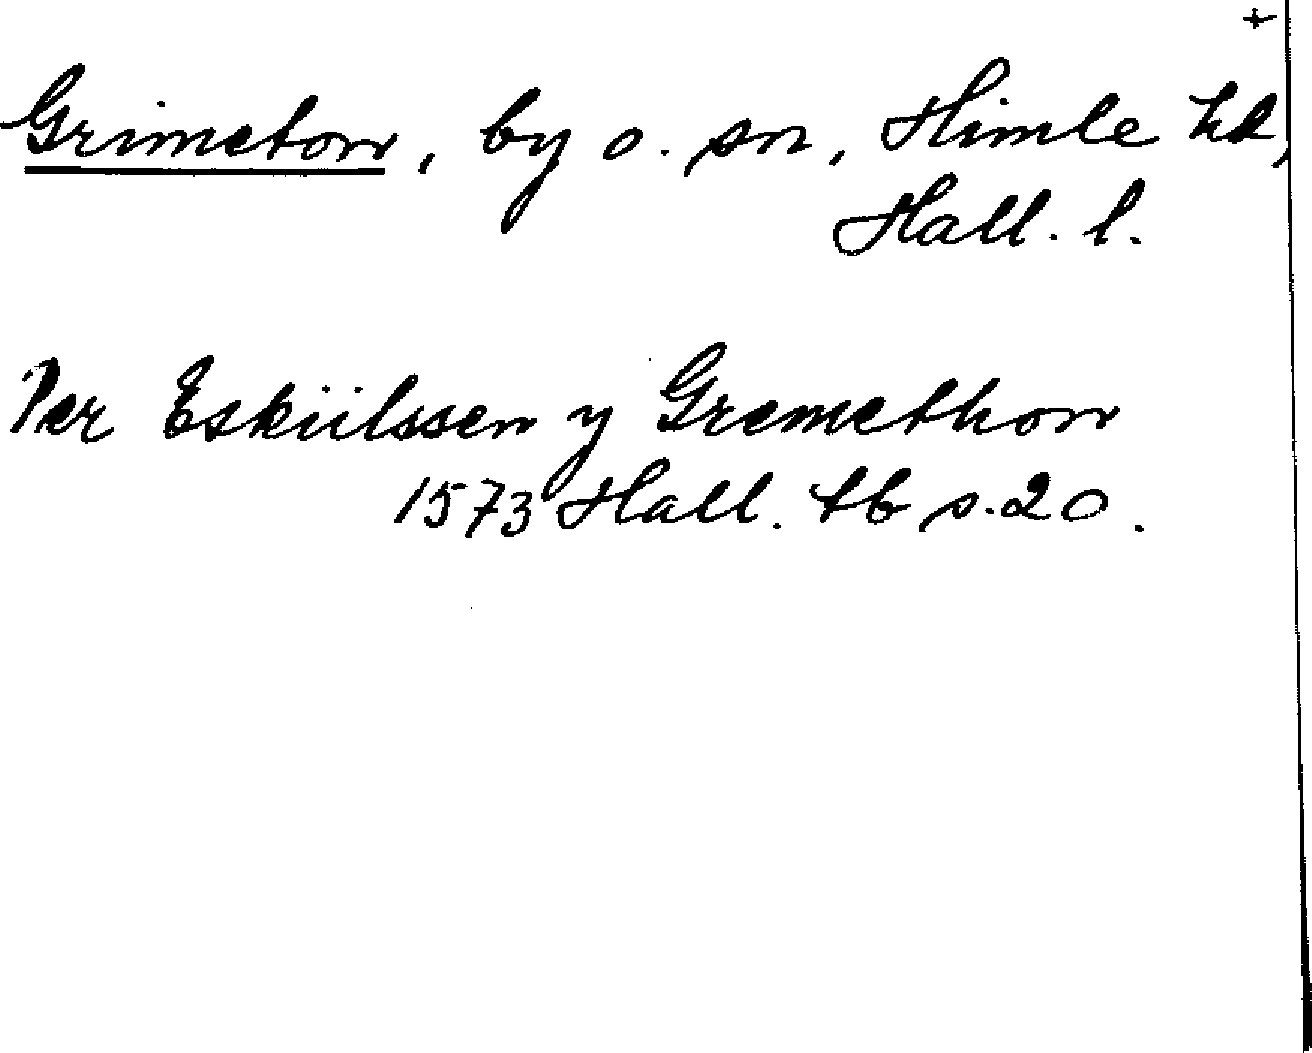 +
Grimeton, by o. sn, Himle hd,
Hall. l.
Per Esküilssen y Gremethon
1573 Hall. tb s. 20.